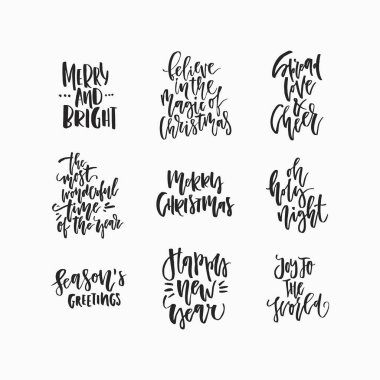 MERRY
AND
BRIGHT
believe
in the
magic of
Christmas
Spread
love &
Cheer
the
most
wonderful
time
of the year
MERRY
CHRISTMAS
oh
holy
night
Season's
GREETINGS
Happy
new
year
Joy To
THE
World